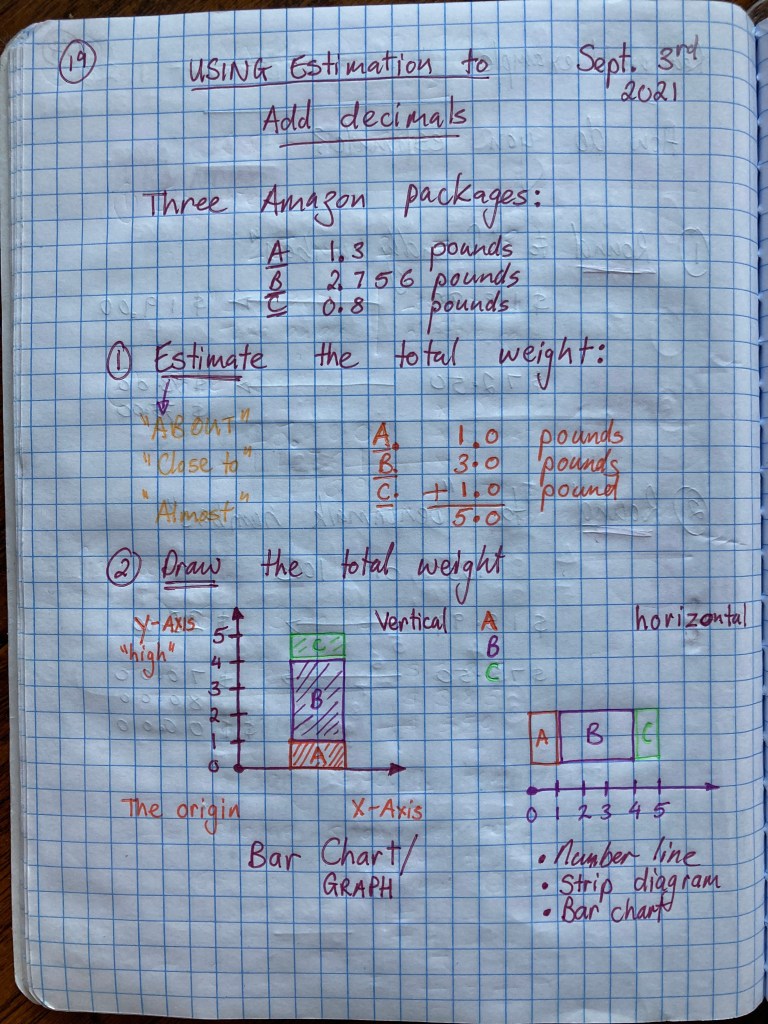 19
USING Estimation to
Add decimals
Sept. 3rd
2021
Three Amazon packages:
A 1.3 pounds
B 2.756 pounds
C 0.8 pounds
① Estimate the total weight:
"ABOUT"
"Close to"
"Almost"
A. 1.0 pounds
B. 3.0 pounds
C. + 1.0 pound
5.0
② Draw the total weight
Y-Axis
"high"
5
4
3
2
1
0
C
B
A
The origin
X-Axis
Bar Chart/
GRAPH
Vertical
A
B
C
horizontal
A B C
0 1 2 3 4 5
• Number line
• Strip diagram
• Bar chart